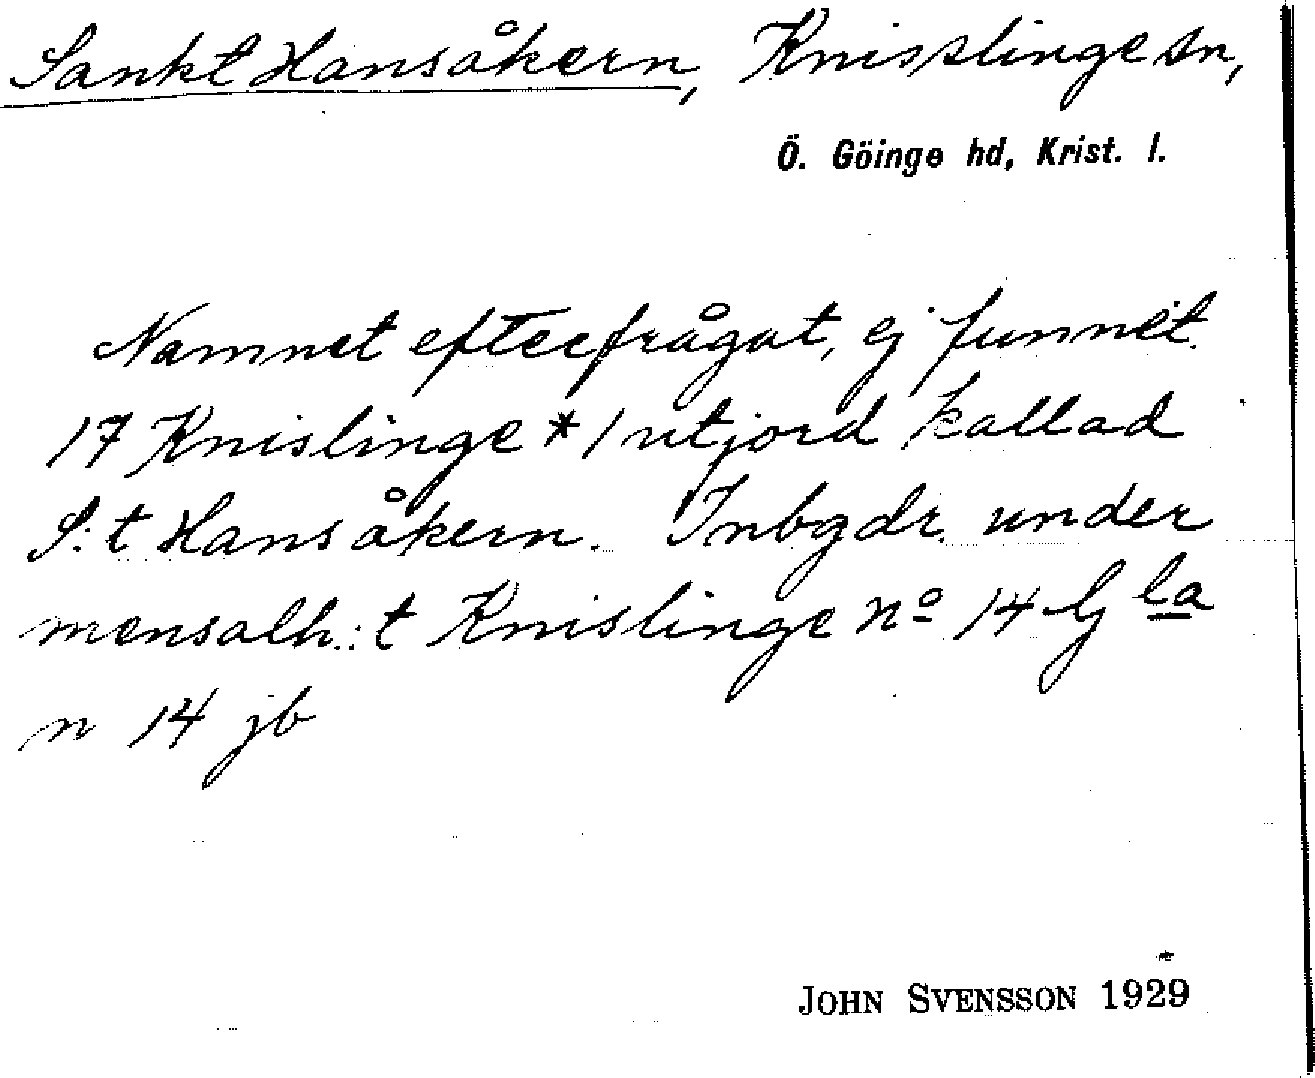 Sankt Hansåkern, Knisslinge sn,
Ö. Göinge hd, Krist. l.
Namnet efterfrågat, ej funnet.
17 Knislinge * 1 utjord kallad
S:t Hansåkern. Inbgdr. under
mensalh:t Knislinge nº 14 G la
n 14 jb
JOHN SVENSSON 1929